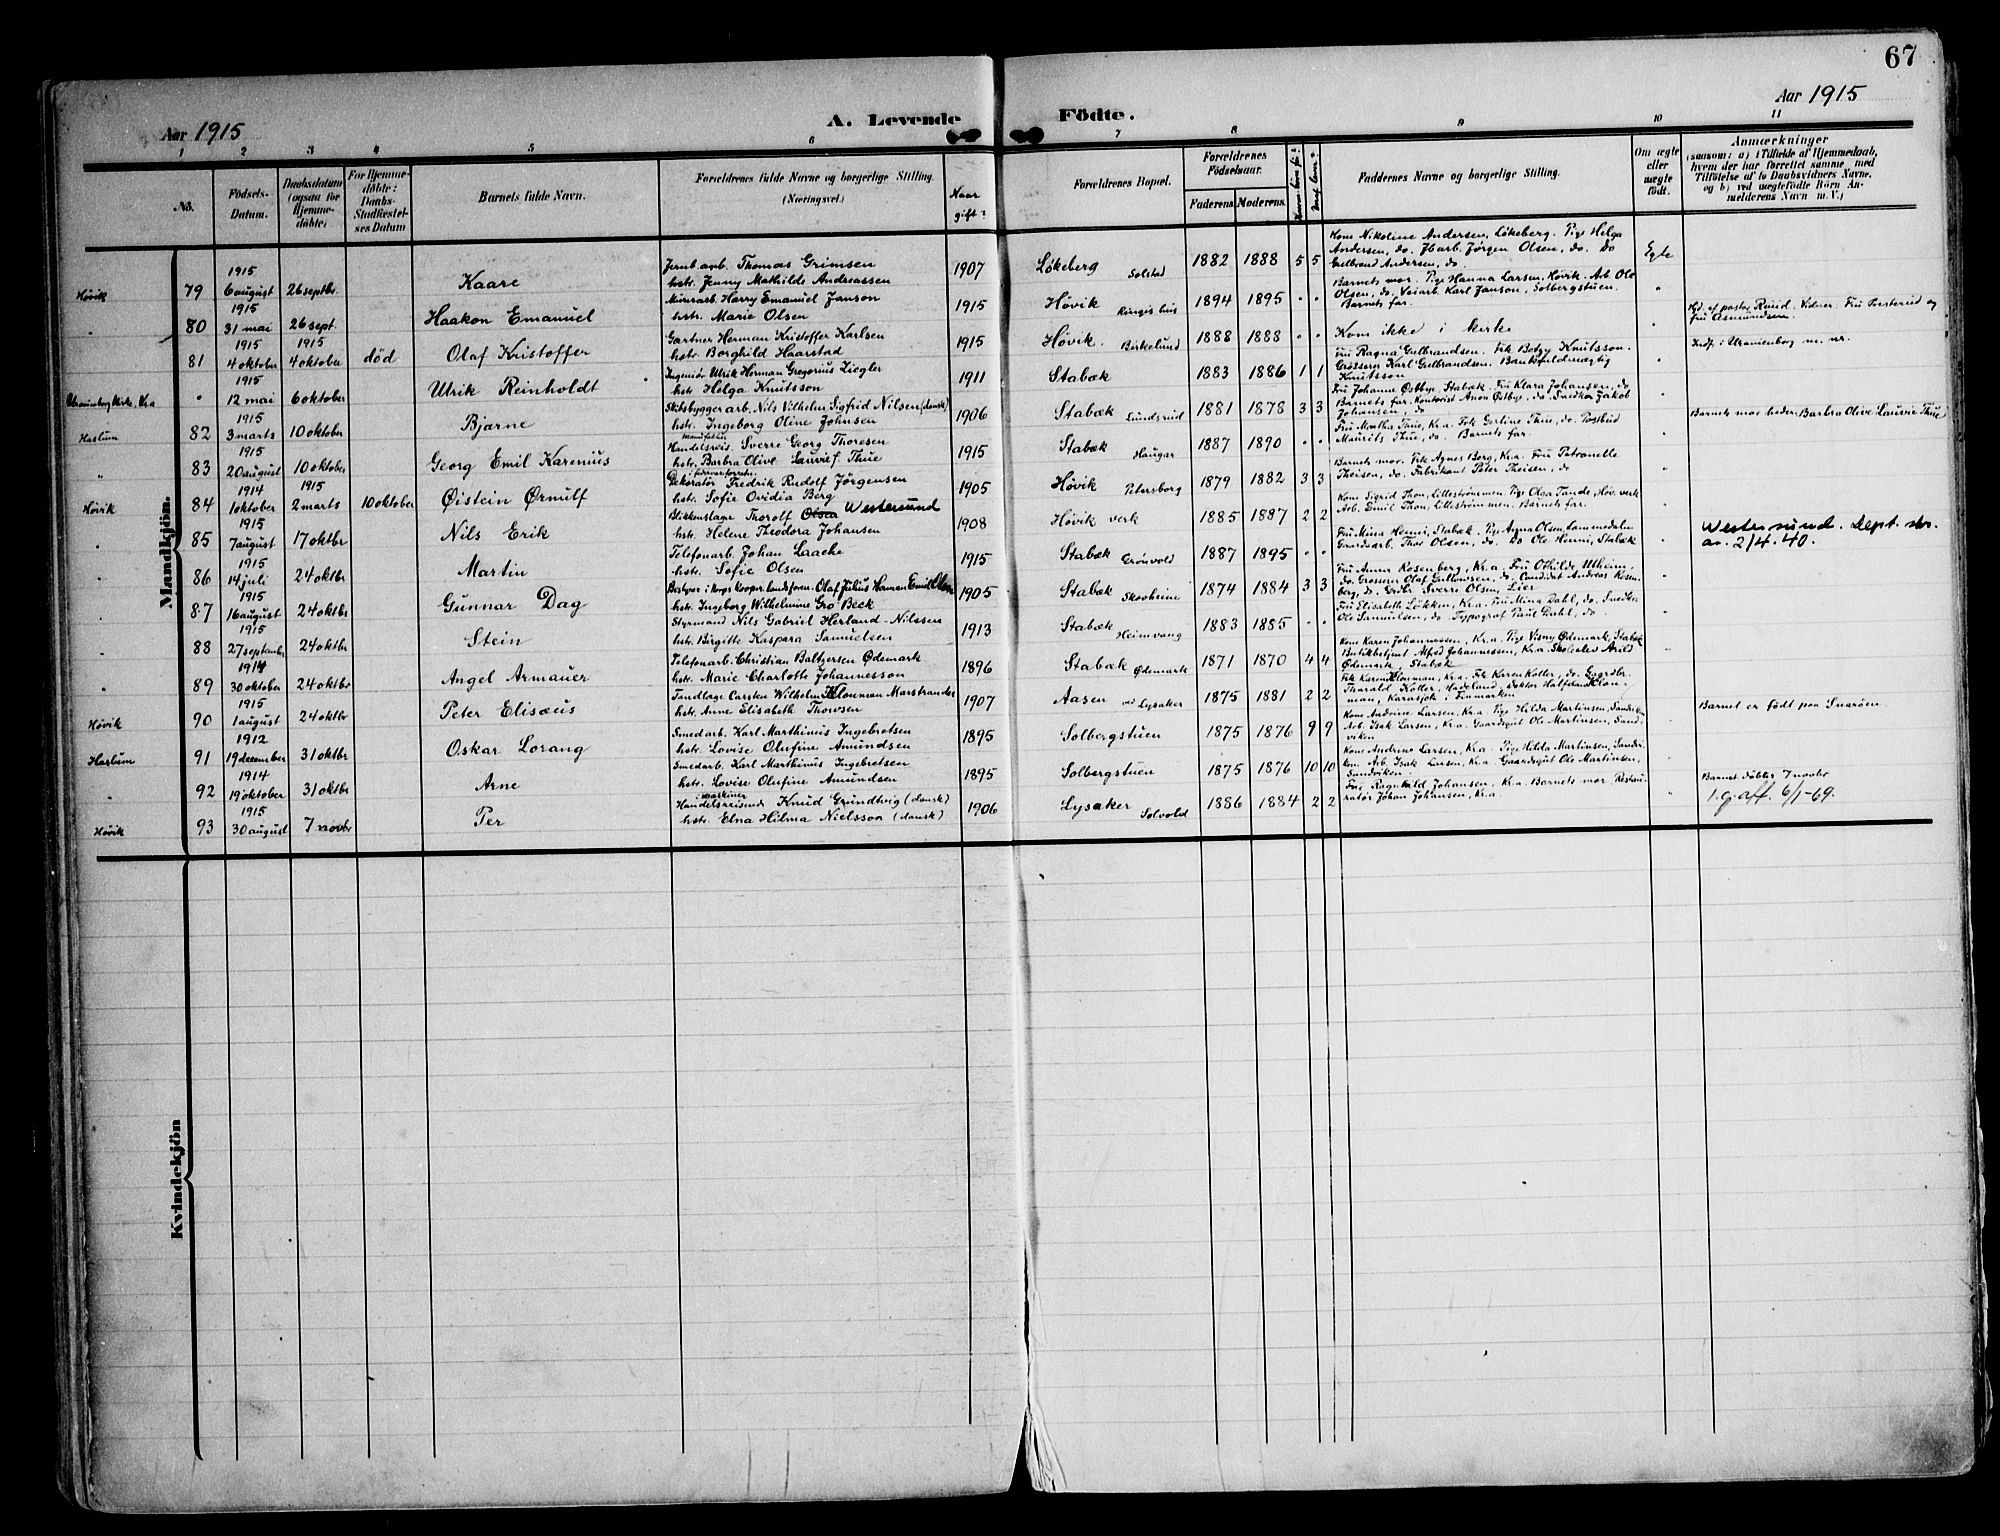 67
Aar 1915
A. Levende
Födte.
Aar 1915
1 2 3 4 5 6 7 8 9 10 11
No.
Födsels-Datum.
Daabsdatum (ogsaa for Hjemmedöbte)
For Hjemmedöbte: Daabs-Stadfæstelses Datum
Barnets fulde Navn.
Forældrenes fulde Navne og borgerlige Stilling. (Næringsvei.)
Naar gift?
Forældrenes Bopæl.
Forældrenes Födselsaar.
Faderens. Moderens.
Faddernes Navne og borgerlige Stilling.
Om ægte eller uægte födt.
Anmærkninger
(saasom: a) i Tilfælde af Hjemmedaab, hvem der har forrettet samme, med Tilföielse af to Daabsvidners Navne, og b) ved uægtefödte Börn Anmelderens Navn m. V.)
Mandkjön.
Høvik 79 1915 6 august 26 septbr. Kaare Jernb.arb. Thomas Grimsen hstr. Jenny Mathilde Andreassen 1907 Løkeberg Solstad 1882 1888 5 5 Kone Nikoline Andersen, Løkeberg. Pige Helga Andersen, do. Jbarb. Jørgen Olsen, do. Do Gulbrand Andersen, do. Egte
" 80 1915 31 mai 26 sept. Haakon Emanuel Minerarb. Harry Emanuel Janson hstr. Marie Olsen 1915 Høvik Ringishus 1894 1895 " " Barnets mor. Pige Hanna Larsen, Høvik. Arb. Ole Olsen, do. Veiarb. Karl Janson, Solbergstuen. Barnets far. "
81 1915 4 oktober 1915 4 oktober død Olaf Kristoffer Gartner Herman Kristoffer Karlsen hstr. Borghild Haarstad 1915 Høvik. Birkelund 1888 1888 " " Kom ikke i kirke " Hjd. af pastor Ruud. Vidner: Fru Torsterud og fru Asmundsen.
Uranienborg kirke, Kra " 1915 12 mai 6 oktober Ulrik Reinholdt Ingeniør Ulrik Herman Gregorius Ziegler hstr. Helga Knutsson 1911 Stabæk 1883 1886 1 1 Fru Ragna Gulbrandsen. Frk. Botzy Knutsson. Grosserer Karl Gulbrandsen. Bankfuldmægtig Knutsson " Indf. i Uranienborg m. nr.
Haslum 82 1915 3 marts 10 oktober Bjarne Skibsbyggerarb. Nils Vilhelm Sigfrid Nilsen (dansk) hstr. Ingeborg Oline Johnsen 1906 Stabæk Lundsrud 1881 1878 3 3 Fru Johanne Østbye, Stabæk. Fru Klara Johansen, do Barnets far. Kontorist Anon Østbye, do. Snedker Jakob Johansen, do "
" 83 1915 20 august 10 oktober Georg Emil Karenius Manufaktur Handelsreis. Sverre Georg Thoresen hstr. Barbra Olive Lauvief Thue 1915 Stabæk Haugar 1887 1890 " " Fru Martha Thue, Kr.a. Frk. Gertine Thue, do. Postbud Maurits Thue, do. Barnets far. " Barnets mor heder: Barbra Olive Laurvie Thue
Høvik 84 1914 1 oktober 1915 2 marts 10 oktober Øistein Ørnulf Dekoratør Fredrik Rudolf Jørgensen hstr. Sofie Ovidia Berg 1905 Høvik Petersborg 1879 1882 3 3 Barnets mor. Frk. Agnes Berg, Kr.a. Fru Petronelle Theisen, do. Fabrikant Peter Theisen, do "
" 85 1915 7 august 17 oktbr Nils Erik Blikkenslager Thorolf Olsen Westersund hstr. Helene Theodora Johansen 1908 Høvik verk 1885 1887 2 2 Kone Sigrid Thon, Lillestrømmen. Pige Olga Tande, Høv. verk Arb. Emil Thon, Lillestrømmen. Barnets far. " Westersund. Dept. skr. av. 2/4. 40.
" 86 1915 14 juli 24 oktbr Martin Telefonarb. Johan Laache hstr. Sofie Olsen 1915 Stabæk Grønvold 1887 1895 " " Fru Mina Henni, Stabæk. Pige Agna Olsen, Lommedalen Graadsarb. Thor Olsen, do. Do Ole Henni, Stabæk "
" 87 1915 16 august 24 oktbr Gunnar Dag Bestyrer i Norges Kooper. landsforen. Olaf Julius Herman Emil Olsen hstr. Ingeborg Wilhelmine Gro Beck 1905 Stabæk Skovheim 1874 1884 3 3 Fru Anna Rosenberg, Kr.a. Fru Othilde Ulheim, do. Grosserer Olaf Gullowsen, do. Candidat Andreas Rosenberg, do. Grdbr. Sverre Olsen, Lier "
" 88 1915 27 september 24 oktbr Stein Styrmand Nils Gabriel Herland-Nilssen hstr. Birgitte Kaspara Samuelsen 1913 Stabæk Heimvang 1883 1885 " " Fru Elisabeth Løkken, Kr.a. Fru Mina Dahl, do. Snedker Ole Samuelsen, do. Typograf Paul Dahl, do. "
" 89 1914 30 oktober 24 oktbr Angel Armauer Telefonarb. Christian Baltzersen Ødemark hstr. Marie Charlotte Johannesson 1896 Stabæk Ødemark 1871 1870 4 4 Kone Karen Johannessen, Kr.a. Pige Visny Ødemark, Stabæk Butikbetjent Alfred Johannessen, Kr.a. Skoleelev Arild Ødemark, Stabæk "
Høvik 90 1915 1 august 24 oktbr Peter Elisæus Tandlæge Carsten Wilhelm Klouman Marstrander hstr. Anne Elisabeth Thowsen 1907 Aasen ved Lysaker 1875 1881 2 2 Frk. Karen Klouman, Kr.a. Frk. Karen Koller, do. Gaardbr. Tharald Koller, Hadeland. Doktor Halfdan Klouman, Karasjok i Finmarken " Barnet er født paa Snarøen.
Haslum 91 1912 19 december 31 oktbr Oskar Lorang Smedarb. Karl Marthinus Ingebretsen hstr. Lovise Olufine Amundsen 1895 Solbergstuen 1875 1876 9 9 Kone Andrine Larsen, Kr.a. Pige Hilda Martinsen, Sandviken Arb. Isak Larsen, Kr.a. Gaardsgut Ole Martinsen, Sandviken "
" 92 1914 19 oktober 31 oktbr Arne Smedarb. Karl Marthinus Ingebretsen hstr. Lovise Olufine Amundsen 1895 Solbergstuen 1875 1876 10 10 Kone Andrine Larsen, Kr.a. Pige Hilda Martinsen, Sandviken. Arb. Isak Larsen, Kr.a. Gaardsgut Ole Martinsen, Sandviken. "
Høvik 93 1915 30 august 7 novbr Per maskiner Handelsreisende Knud Grundtvig (dansk) hstr. Elna Hilma Nielsson (dansk) 1906 Lysaker Solvold 1886 1884 2 2 Frue Ragnhild Johansen, Kr.a. Barnets mor. Restauratør Johan Johansen, Kr.a. " Barnet døbtes 7 novbr 1.gj.aff. 6/1-69.
Kvindekjön